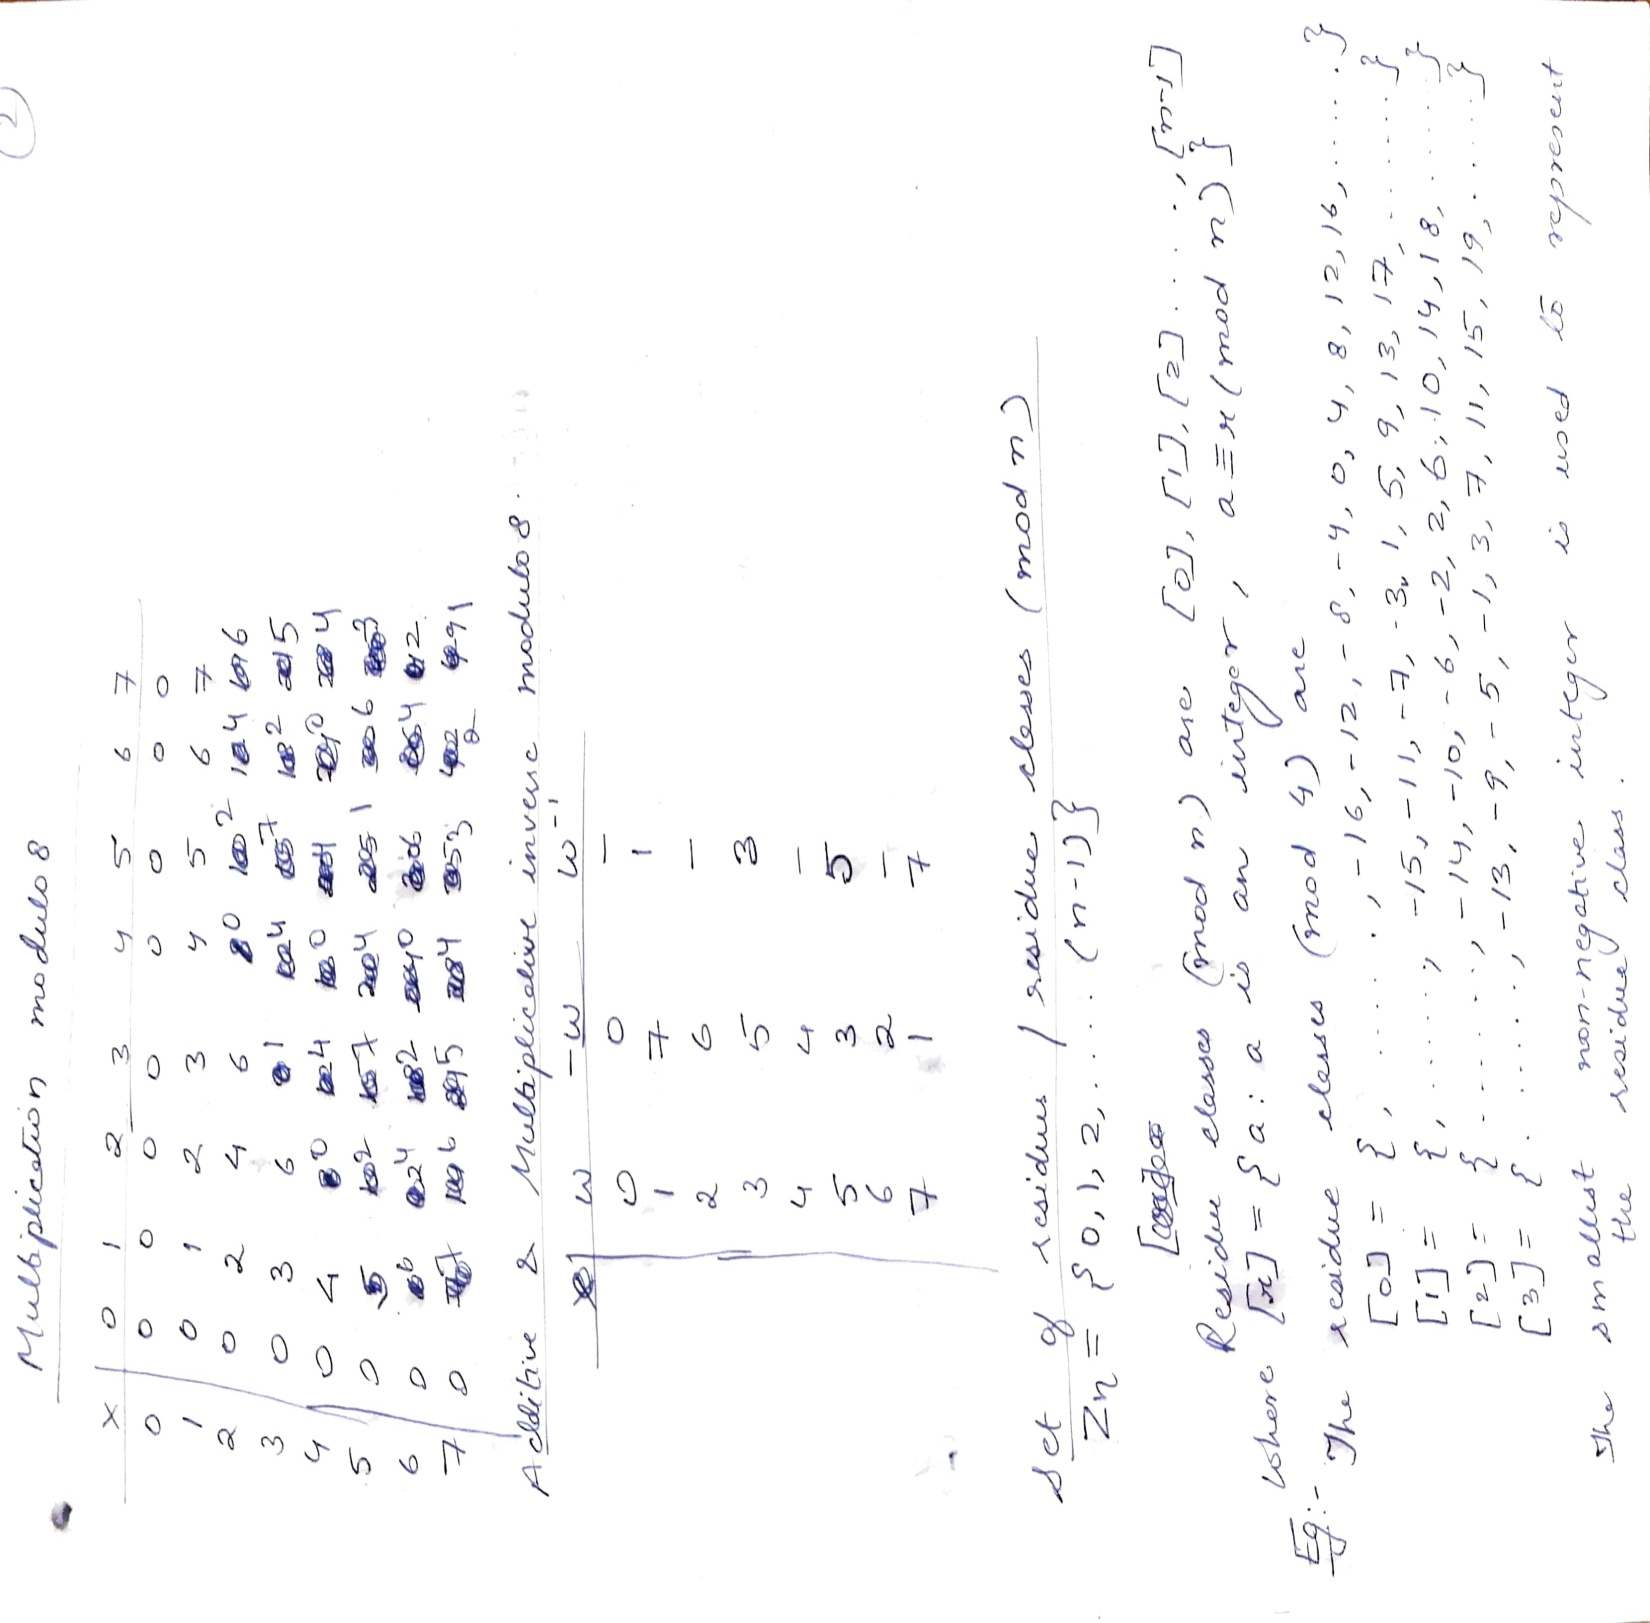 2
Multiplication modulo 8
× 0 1 2 3 4 5 6 7
0 0 0 0 0 0 0 0 0
1 0 1 2 3 4 5 6 7
2 0 2 4 6 0 2 4 6
3 0 3 6 1 4 7 2 5
4 0 4 0 4 0 4 0 4
5 0 5 2 7 4 1 6 3
6 0 6 4 2 0 6 4 2
7 0 7 6 5 4 3 2 1
Additive & Multiplicative inverse modulo 8.
w -w w⁻¹
0 0 –
1 7 1
2 6 –
3 5 3
4 4 –
5 3 5
6 2 –
7 1 7
Set of residues / residue classes (mod n)
Zn = {0,1,2,.....(n-1)}
Residue classes (mod n) are [0],[1],[2]....,[n-1]
where [r] = {a: a is an integer, a≡r(mod n)}
Eg:- The residue classes (mod 4) are
[0] = {, ....., -16,-12,-8,-4,0,4,8,12,16,.....}
[1] = {, ....., -15,-11,-7,-3,1,5,9,13,17,......}
[2] = {......,-14,-10,-6,-2,2,6,10,14,18,.....}
[3] = {......,-13,-9,-5,-1,3,7,11,15,19,.....}
The smallest non-negative integer is used to represent
the residue class.